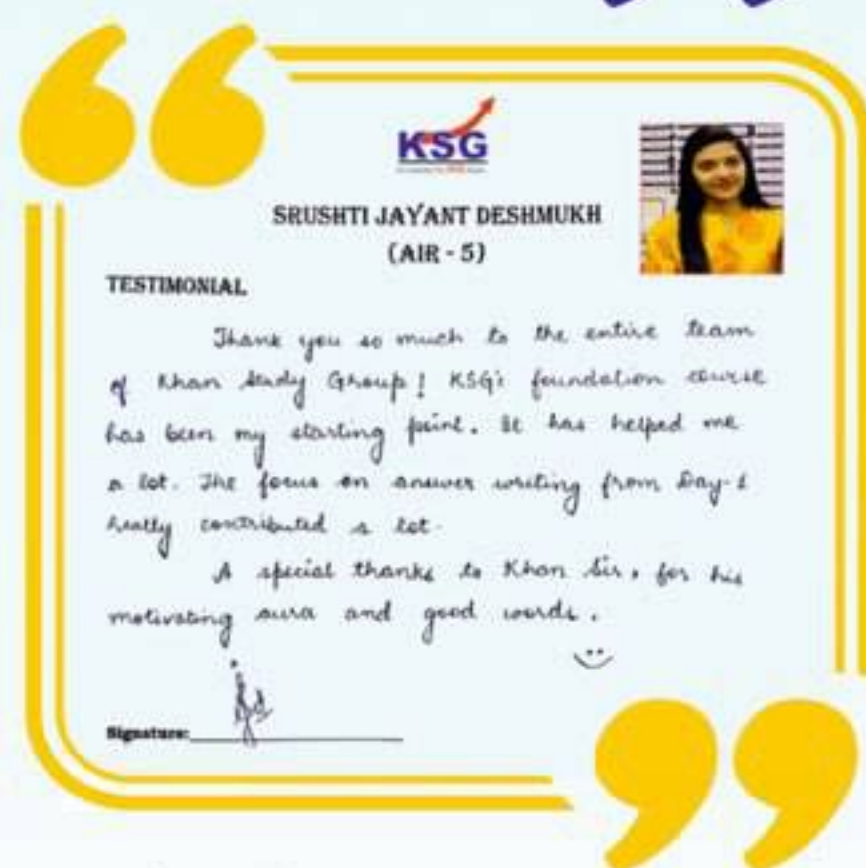 KSG
SRUSHTI JAYANT DESHMUKH
(AIR - 5)
TESTIMONIAL
Thank you so much to the entire team
of Khan Study Group! KSG's foundation course
has been my starting point. It has helped me
a lot. The focus on answer writing from Day-1
really contributed a lot.
A special thanks to Khan Sir, for his
motivating aura and good words.
Signature: